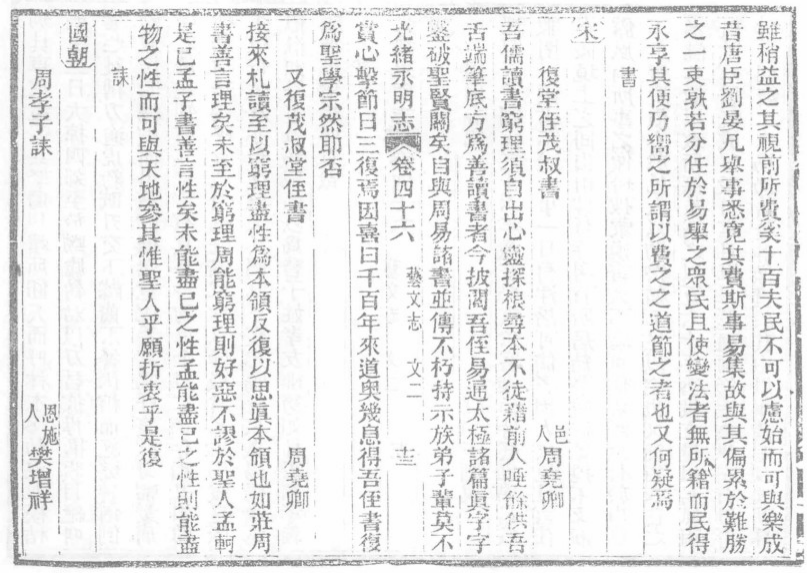 雖稍益之其視前所費奚十百夫民不可以慮始而可與樂成
昔唐臣劉晏凡舉事悉寬其費斯事易集故與其偏累於難勝
之一吏孰若分任於易舉之衆民且使變法者無所籍而民得
永享其便乃嚮之所謂以費之之道節之者也又何疑焉
書
宋
復堂侄茂叔書 邑人周堯卿
吾儒讀書窮理須自出心靈探根尋本不徒藉前人唾餘供吾
舌端筆底方爲善讀書者今披閱吾侄易通太極諸篇眞字字
鑿破聖賢關矣自與周易諸書並傳不朽持示族弟子輩莫不
光緒永明志 卷四十六 藝文志 文二 十三
賞心擊節曰三復焉因喜曰千百年來道奧幾息得吾侄書復
爲聖學宗然耶否
又復茂叔堂侄書 周堯卿
接來札讀至以窮理盡性爲本領反復以思眞本領也如莊周
書善言理矣未至於窮理周能窮理則好惡不謬於聖人孟軻
是已孟子書善言性矣未能盡已之性孟能盡已之性則能盡
物之性而可與天地參其惟聖人乎願折衷乎是復
誄
國朝
周孝子誄 恩施人樊增祥